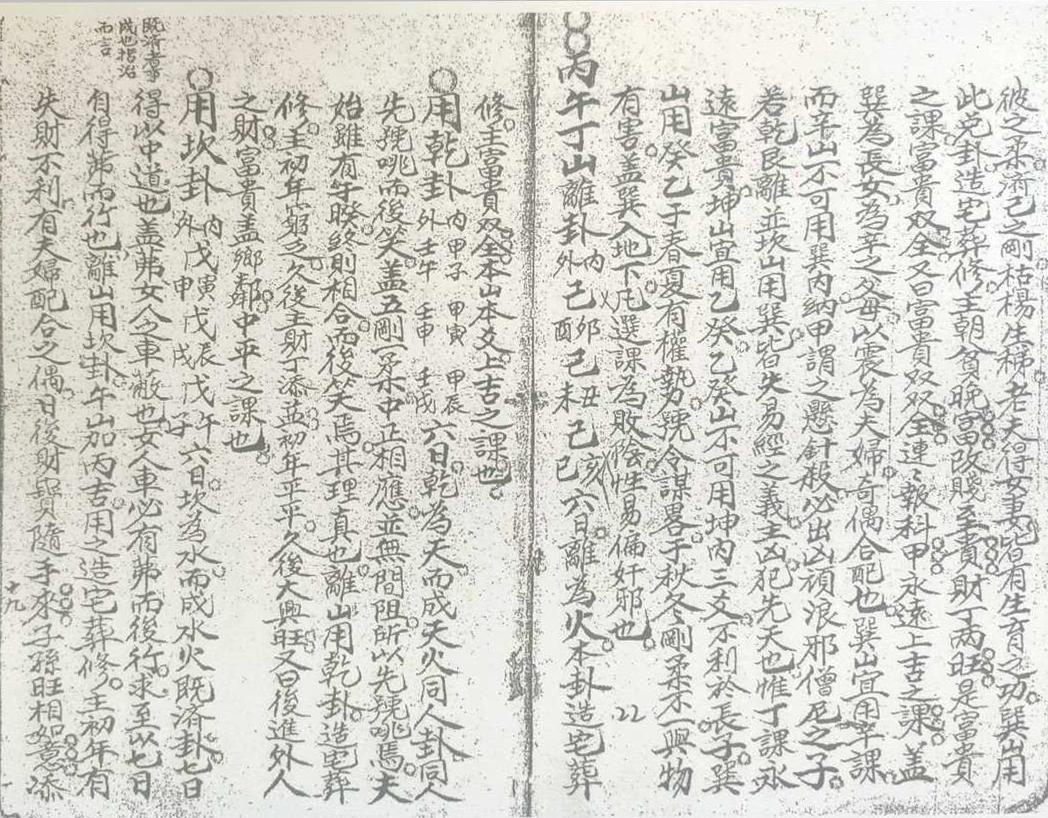 彼之柔濟己之剛枯楊生稊老夫得女妻皆有生育之功巽山用
此兌卦造宅葬修主朝貧晚富改賤至貴財丁両旺是富貴
之課富貴双全又曰富貴双双全連々報科甲永遠上吉之課蓋
巽為長女為辛之父母以震為夫婦奇偶合配也巽山宜用辛課
而辛山不可用巽內納甲謂之懸針殺必出凶頑浪邪僧尼之子
若乾艮離並坎山用巽皆失易經之義主凶犯先天也惟丁課永
遠富貴坤山宜用乙癸乙癸山不可用坤內三爻不利於長子巽
山用癸乙于春夏有權勢號令謀畧于秋冬剛柔不一與物
有害蓋巽入地下凡選課為敗陰性易偏奸邪也
丙午丁山離卦內己卯己丑己亥外己酉己未己巳六日離為火本卦造宅葬
22
修主富貴双全本山本爻上吉之課也
用乾卦內甲子甲寅甲辰外壬午壬申壬戌六日乾為天而成天火同人卦同人
先號咷而後笑蓋五剛一柔中正相應並無間阻所以先號咷焉夫
始雖有乖睽終則相合而後笑焉其理真也離山用乾卦造宅葬
修主初年窮乏久後主財丁添並初年平平久後大興旺又曰後進外人
之財富貴蓋鄉鄰中平之課也
用坎卦內戊寅戊辰戊午外戊申戊戌戊子六日坎為水而成水火既濟卦七日
得以中道也蓋茀女人之車蔽也女人車必有茀而後行求至以七日
自得茀而行也離山用坎卦午山加丙吉用之造宅葬修主初年有
失財不利有夫婦配合之偶日後財貿隨手來子孫旺相如意添
既濟者事
成也指治
而言
十九